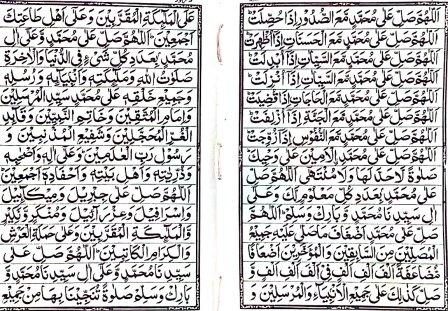 اَللّٰهُمَّ صَلِّ عَلٰى مُحَمَّدٍ مَّعَ الصُّدُوْرِ اِذَا حُصِّلَتْ
اَللّٰهُمَّ صَلِّ عَلٰى مُحَمَّدٍ مَّعَ الْحَسَنَاتِ اِذَا اُظْهِرَتْ
اَللّٰهُمَّ صَلِّ عَلٰى مُحَمَّدٍ مَّعَ السَّيِّاٰتِ اِذَا اُبْدِلَتْ
اَللّٰهُمَّ صَلِّ عَلٰى مُحَمَّدٍ مَّعَ السَّيِّاٰتِ اِذَا
اَللّٰهُمَّ صَلِّ عَلٰى مُحَمَّدٍ مَّعَ الْحَاجَاتِ اِذَا قُضِيَتْ
اَللّٰهُمَّ صَلِّ عَلٰى مُحَمَّدٍ مَّعَ الْجَنَّةِ اِذَا اُزْلِفَتْ
اَللّٰهُمَّ صَلِّ عَلٰى مُحَمَّدٍ مَّعَ النُّفُوْسِ اِذَا زُوِّجَتْ
اَللّٰهُمَّ صَلِّ عَلٰى مُحَمَّدِ الْاَمِيْنِ عَلٰى وَحْيِكَ
صَلٰوةً لَّاحَدَّ لَهَا وَلَا مُنْتَهٰى اَللّٰهُمَّ صَلِّ
عَلٰى مُحَمَّدٍ بِعَدَدِ كُلِّ مَعْلُوْمٍ لَّكَ وَعَلٰى
اٰلِ سَيِّدِنَا مُحَمَّدٍ وَّبَارِكْ وَسَلِّمْ اَللّٰهُمَّ
صَلِّ عَلٰى مُحَمَّدٍ اَضْعَافَ مَا صَلّٰى عَلَيْهِ جَمِيْعُ
الْمُصَلِّيْنَ مِنَ السَّابِقِيْنَ وَالْمُؤَخَّرِيْنَ اَضْعَافًا
مُّضَاعَفَةً اَلْفَ اَلْفٍ فِيْ اَلْفِ اَلْفِ اَلْفٍ وَّ
صَلِّ كَذٰلِكَ عَلٰى جَمِيْعِ الْاَنْبِيَآءِ وَالْمُرْسَلِيْنَ وَ
عَلَى الْمَلٰٓئِكَةِ الْمُقَرَّبِيْنَ وَعَلٰى اَهْلِ طَاعَتِكَ
اَجْمَعِيْنَ اَللّٰهُمَّ صَلِّ عَلٰى مُحَمَّدٍ وَّعَلٰى اٰلِ
مُحَمَّدٍ بِعَدَدِ كُلِّ شَيْءٍ فِي الدُّنْيَا وَالْاٰخِرَةِ
صَلَوٰتُ اللّٰهِ وَمَلٰٓئِكَتِهٖ وَاَنْبِيَآئِهٖ وَرُسُلِهٖ
وَجَمِيْعِ خَلْقِهٖ عَلٰى مُحَمَّدٍ سَيِّدِ الْمُرْسَلِيْنَ
وَاِمَامِ الْمُتَّقِيْنَ وَخَاتَمِ النَّبِيِّيْنَ وَقَآئِدِ
الْغُرِّ الْمُحَجَّلِيْنَ وَشَفِيْعِ الْمُذْنِبِيْنَ
رَسُوْلِ رَبِّ الْعٰلَمِيْنَ وَعَلٰى اٰلِهٖ وَاَصْحَابِهٖ
وَذُرِّيَّتِهٖ وَاَهْلِ بَيْتِهٖ وَاَحْفَادِهٖ اَجْمَعِيْنَ
اَللّٰهُمَّ صَلِّ عَلٰى جِبْرِيْلَ وَمِيْكَآئِيْلَ
وَاِسْرَافِيْلَ وَعِزْرَآئِيْلَ وَمُنْكَرٍ وَّنَكِيْرٍ
وَالْمَلٰٓئِكَةِ الْمُقَرَّبِيْنَ وَعَلٰى حَمَلَةِ الْعَرْشِ
وَالْكِرَامِ الْكَاتِبِيْنَ اَللّٰهُمَّ صَلِّ عَلٰى
سَيِّدِنَا مُحَمَّدٍ وَّعَلٰى اٰلِ سَيِّدِنَا مُحَمَّدٍ وَّ
بَارِكْ وَسَلِّمْ صَلٰوةً تُنَجِّيْنَا بِهَا مِنْ جَمِيْعِ